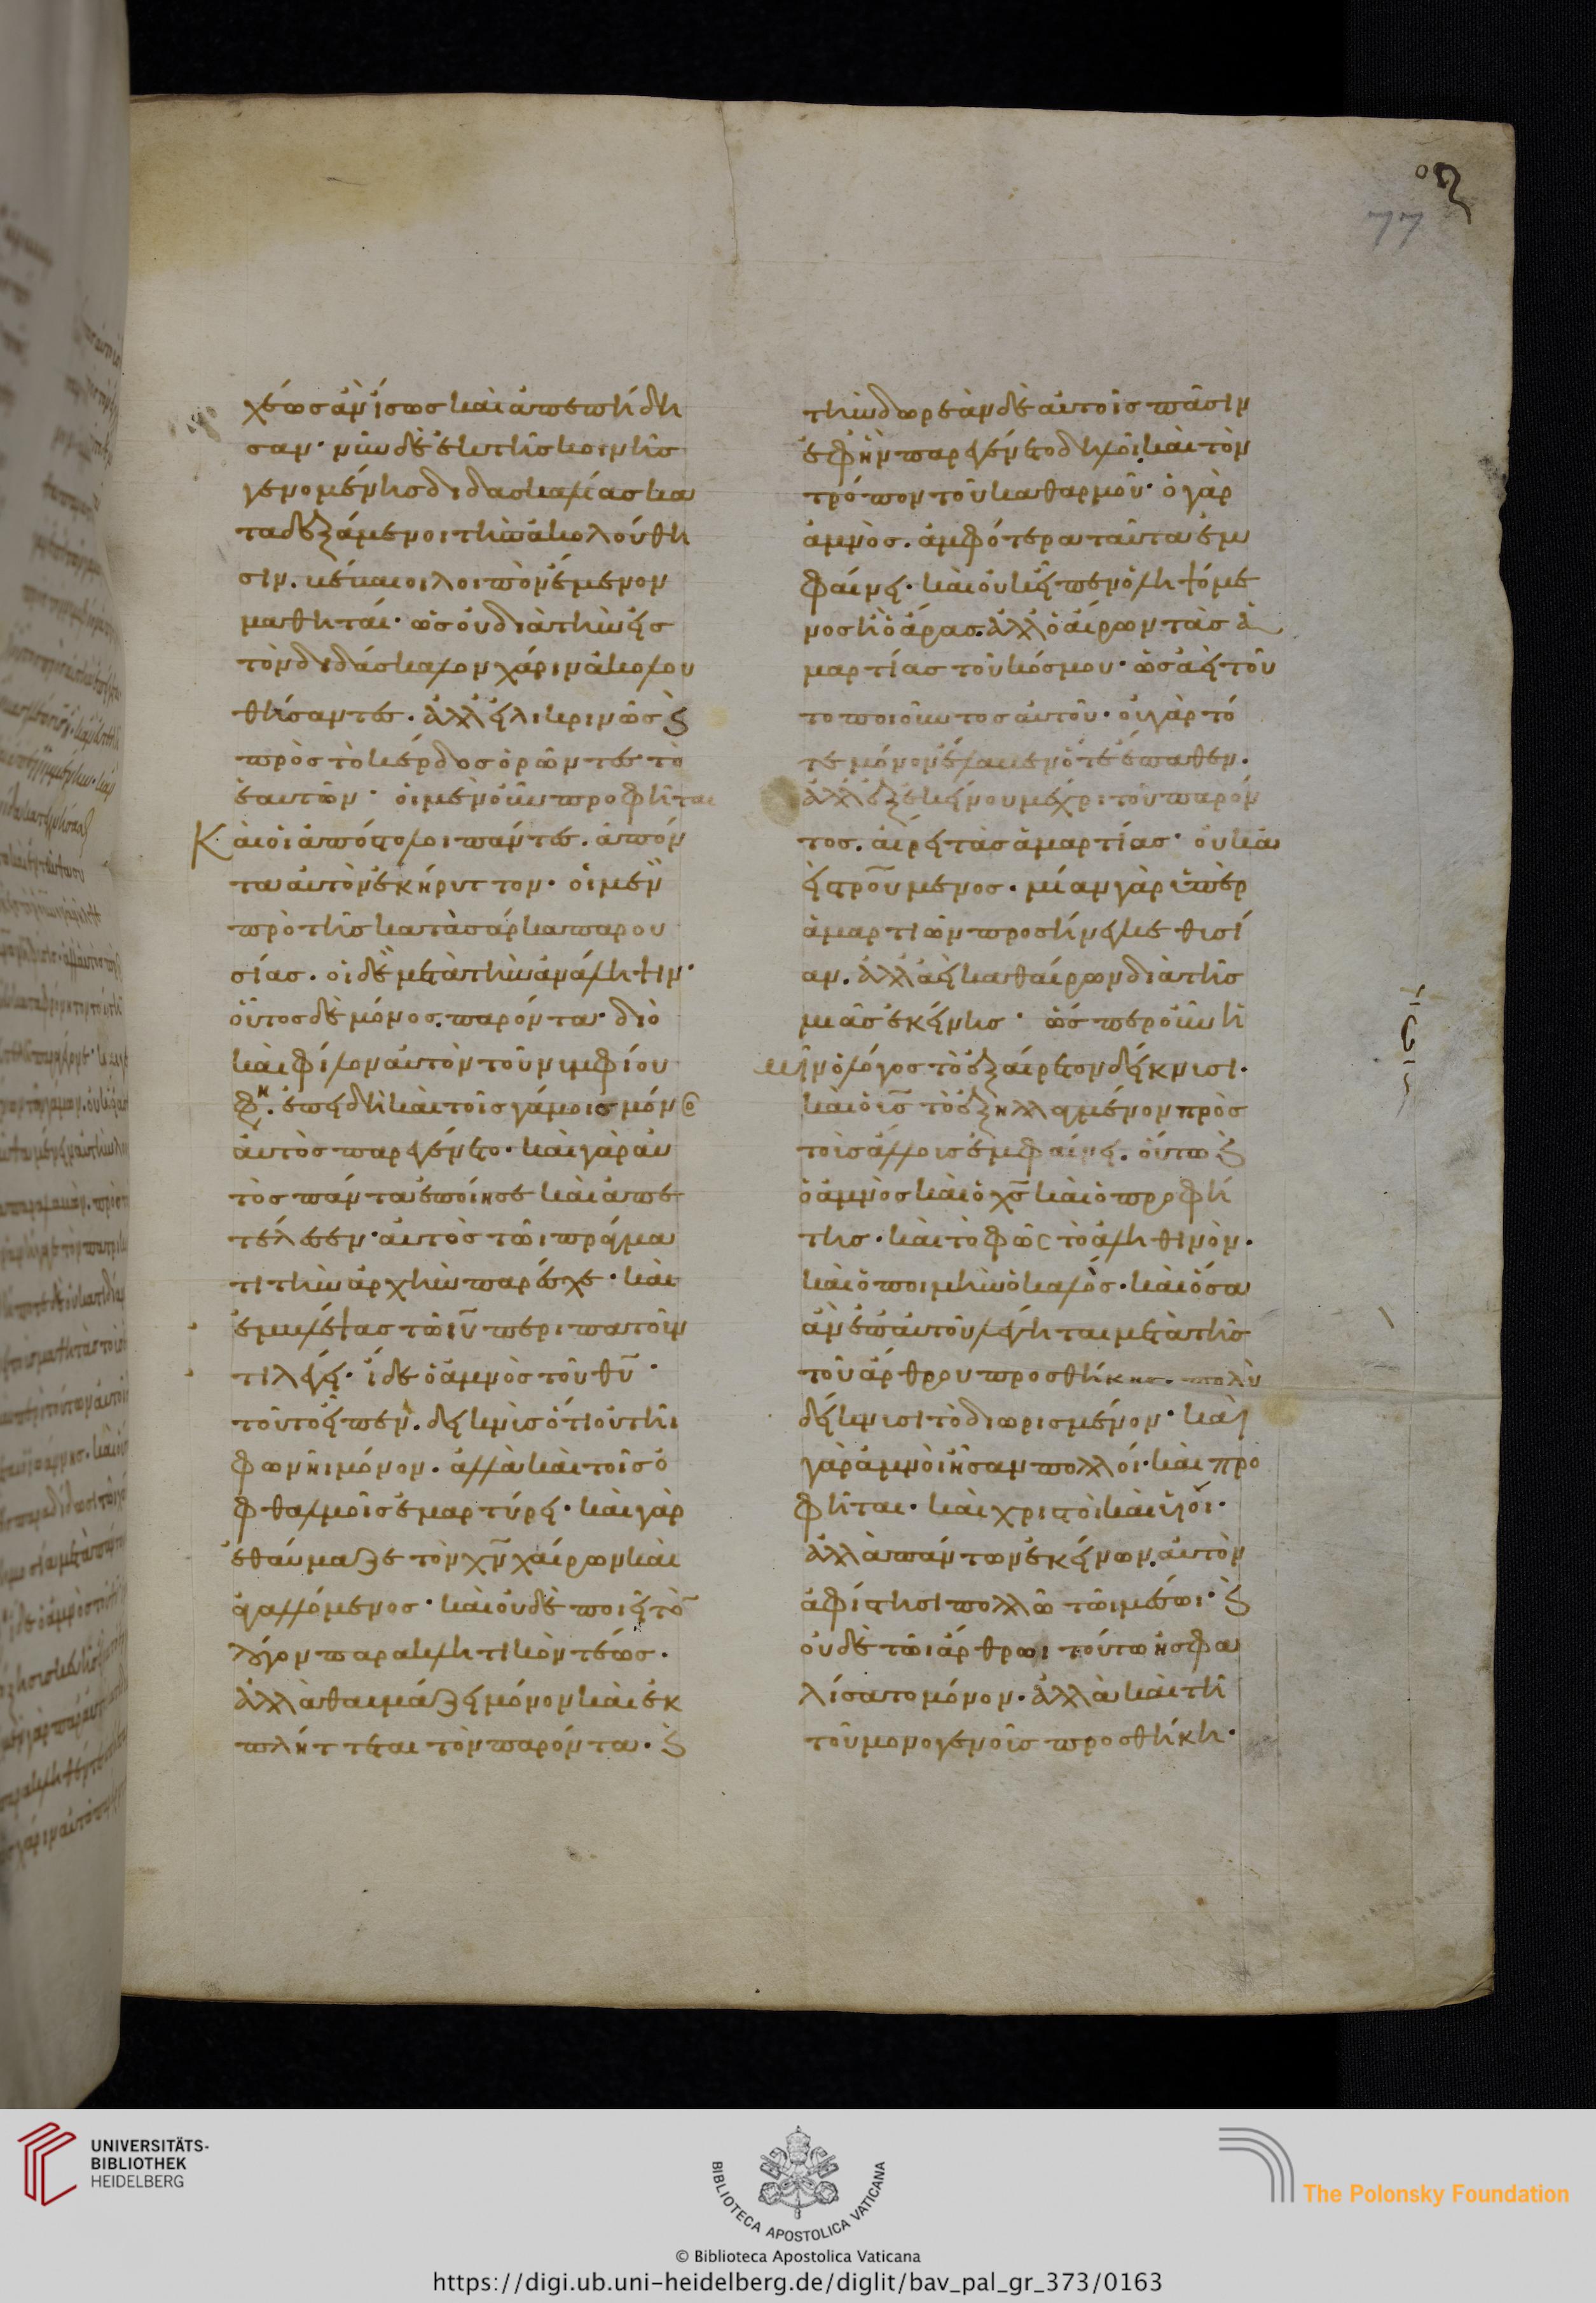 οη
77
χέωσ ἀν ἴσωσ καὶ ἀπεπήδη
σαν· νῦν δὲ ἐκ τῆς κοινῆς
γενομένης διδασκαλίας κα
ταδεξάμενοι τὴν ἀκολούθη
σιν. βέβαιοι λοιπὸν ἔμενον
μαθηταί· ὡς οὐ διὰ τὴν εἰς
τὸν διδάσκαλον χάριν ἀκολου
θήσαντες. ἀλλ' εἰλικρινῶς καὶ
πρὸς τὸ κέρδος ὁρῶντες τὸ
ἑαυτῶν· οἱ μὲν οὖν προφῆται
Καὶ οἱ ἀπόστολοι πάντες. ἀπόν
τα αὐτὸν ἐκήρυττον· οἱ μὲν
πρὸ τῆς κατὰ σάρκα παρου
σίας. οἱ δὲ μετὰ τὴν ἀνάληψιν·
οὗτος δὲ μόνος. παρόντα· διὸ
καὶ φίλον αὐτὸν τοῦ νυμφίου
φη. ἐπειδὴ καὶ τοῖς γάμοις μόνος
αὐτὸς παρεγένετο· καὶ γὰρ αὐ
τὸς πάντα ἐποίησε καὶ ἀπε
τέλεσεν· αὐτὸς τῶι πράγμα
τι τὴν ἀρχὴν παρέσχε· καὶ
ἐμβλέψας τῶ ιυ περιπατοῦν
τι λέγει· ἴδε ὁ ἀμνὸς τοῦ θυ·
τοῦτο εἶπεν. δεικνὺς ὅτι οὐ τῆι
φωνῆι μόνον. ἀλλὰ καὶ τοῖς ὀ
φθαλμοῖς ἐμαρτύρει· καὶ γὰρ
ἐθαύμαζε τὸν χν χαίρων καὶ
ἀγαλλόμενος· καὶ οὐδὲ ποιεῖ τὸν
λόγον παρακλητικὸν τέως.
ἀλλὰ θαυμάζει μόνον καὶ ἐκ
πλήττεται τὸν παρόντα. καὶ
τὴν δωρεὰν δὲ αὐτοῖς πᾶσιν
ἐφ' ἣν παρεγένετο δηλοῖ καὶ τὸν
τρόπον τοῦ καθαρμοῦ· ὁ γὰρ
ἀμνὸς. ἀμφότερα ταῦτα ἐμ
φαίνει. καὶ οὐκ εἶπεν ὁ ληψόμε
νος ἢ ὁ ἄρας. ἀλλ' ὁ αἴρων τὰς ἁ
μαρτίας τοῦ κόσμου· ὡς ἀεὶ τοῦ
το ποιοῦντος αὐτοῦ· οὐ γὰρ τό
τε μόνον ἔλαβεν ὅτε ἔπαθεν.
ἀλλ' ἐξ ἐκείνου μέχρι τοῦ παρόν
τος. αἴρει τὰς ἁμαρτίας· οὐκ ἀ
εὶ στρουμενος. μίαν γὰρ ὑπὲρ
ἁμαρτιῶν προσήνεγκε θυσί
αν. ἀλλ' ἀεὶ καθαίρων διὰ τῆς
μιᾶς ἐκείνης· ὥσπερ οὖν ἡ
μῖν ὁ λόγος τὸ ἐξαίρετον δείκνυσι.
καὶ ὁ ις τὸ ἐξηλλαγμένον πρὸς
τοὺς ἄλλους ἐμφαίνει. οὕτω καὶ
ὁ ἀμνὸς καὶ ὁ χς καὶ ὁ προφή
της. καὶ τὸ φῶς τὸ ἀληθινὸν.
καὶ ὁ ποιμὴν ὁ καλός. καὶ ὅσα
ἂν ἐπ' αὐτοῦ λέγηται μετὰ τῆς
τοῦ ἄρθρου προσθήκης. πολὺ
δείκνυσι τὸ διωρισμένον· καὶ
γὰρ ἀμνοὶ ἦσαν πολλοί. καὶ προ
φῆται. καὶ χριστοὶ καὶ υἱοί.
ἀλλὰ πάντων ἐκείνων αὐτὸν
ἀφίστησι πολλῶ τῶι μέσωι· καὶ
οὐδὲ τῶι ἄρθρωι τούτω ἠσφα
λίσατο μόνον. ἀλλὰ καὶ τῆ
τοῦ μονογενοῦς προσθήκη·
UNIVERSITÄTS-
BIBLIOTHEK
HEIDELBERG
BIBLIOTECA APOSTOLICA VATICANA
The Polonsky Foundation
© Biblioteca Apostolica Vaticana
https://digi.ub.uni-heidelberg.de/diglit/bav_pal_gr_373/0163